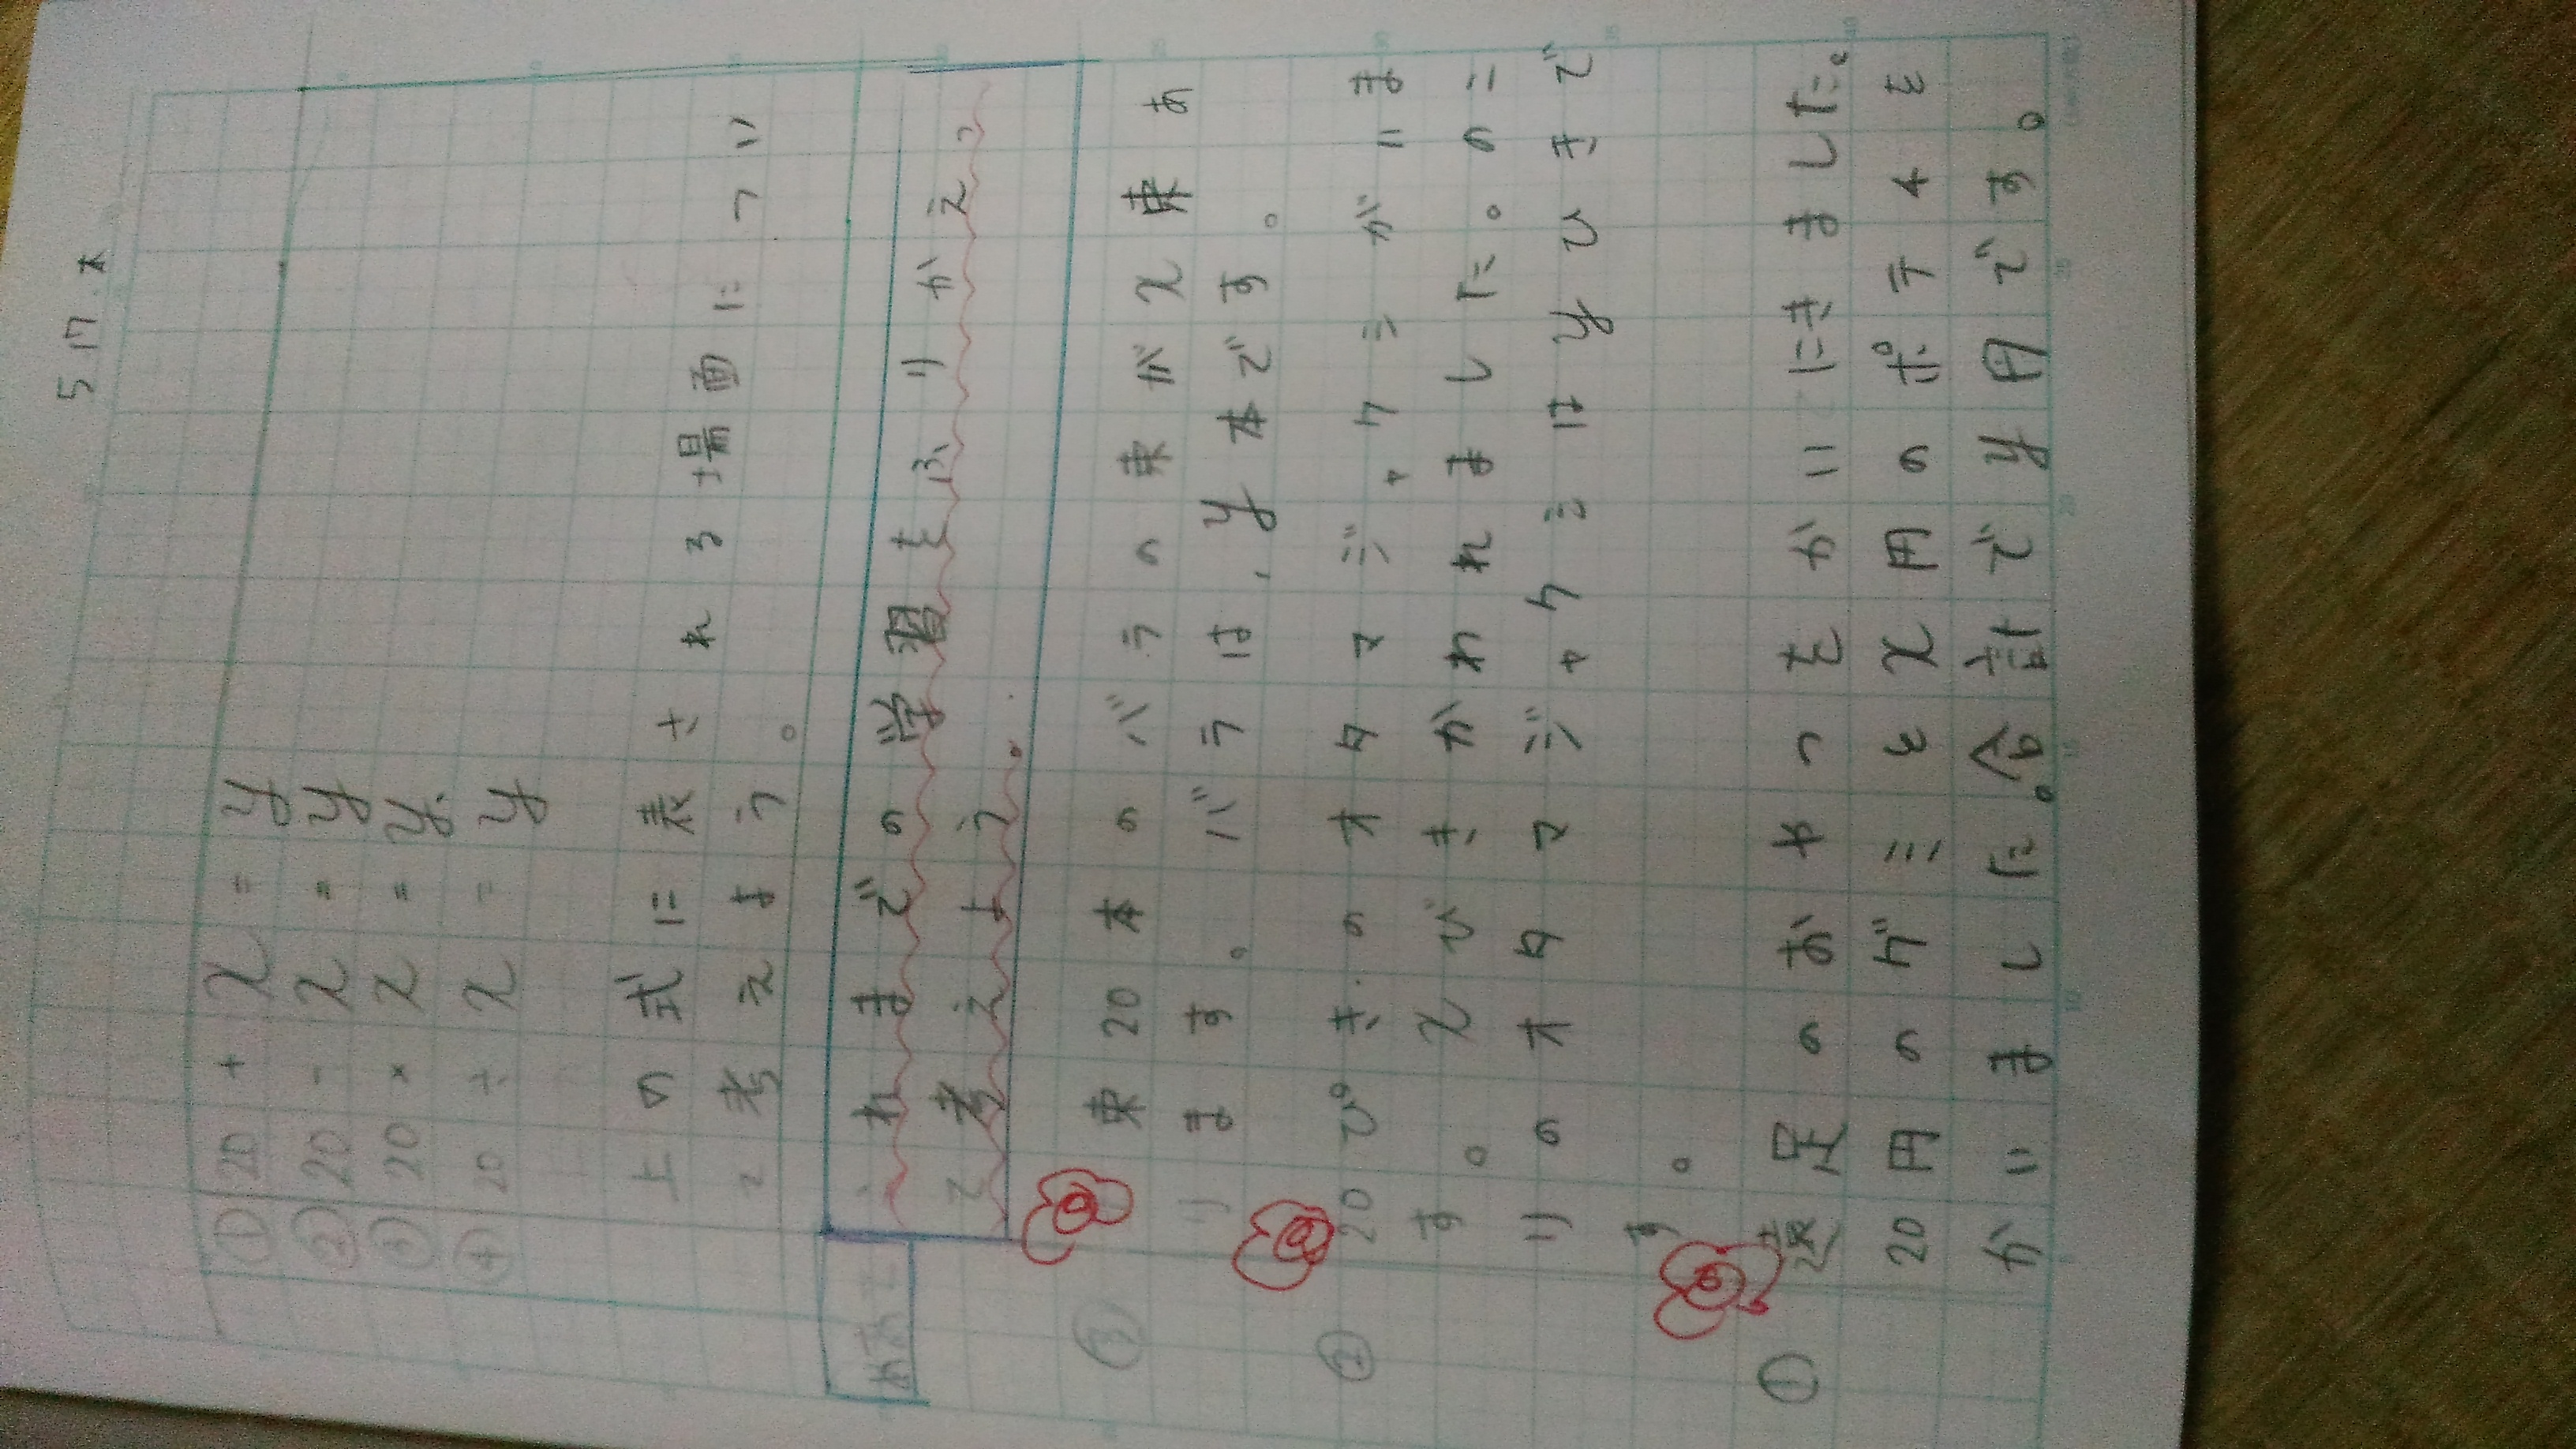 5.17.木
① 20 + x = y
② 20 - x = y
③ 20 × x = y
④ 20 ÷ x = y
上の式に表される場面につい
て考えよう。
めあて
これまでの学習をふりかえっ
て考えよう。
③ 束20本のバラの束がx束あ
ります。バラは,y本です。
② 20ぴきのオタマジャクシがいま
す。xびきかわれました。のこ
りのオタマジャクシはyひきで
す。
① 遠足のおやつをかいにきました。
20円のグミとx円のポテチを
かいました。合計でy円です。